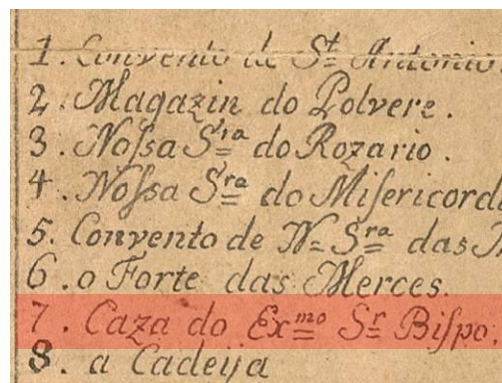 1. Convento de St. Antonio.
2. Magazin do Polvere.
3. Noſsa Sra do Rozario.
4. Noſsa Sra do Miſericord
5. Convento de N. Sra das M
6. o Forte das Merces.
7. Caza do Exmo Sr Biſpo.
8. a Cadeija